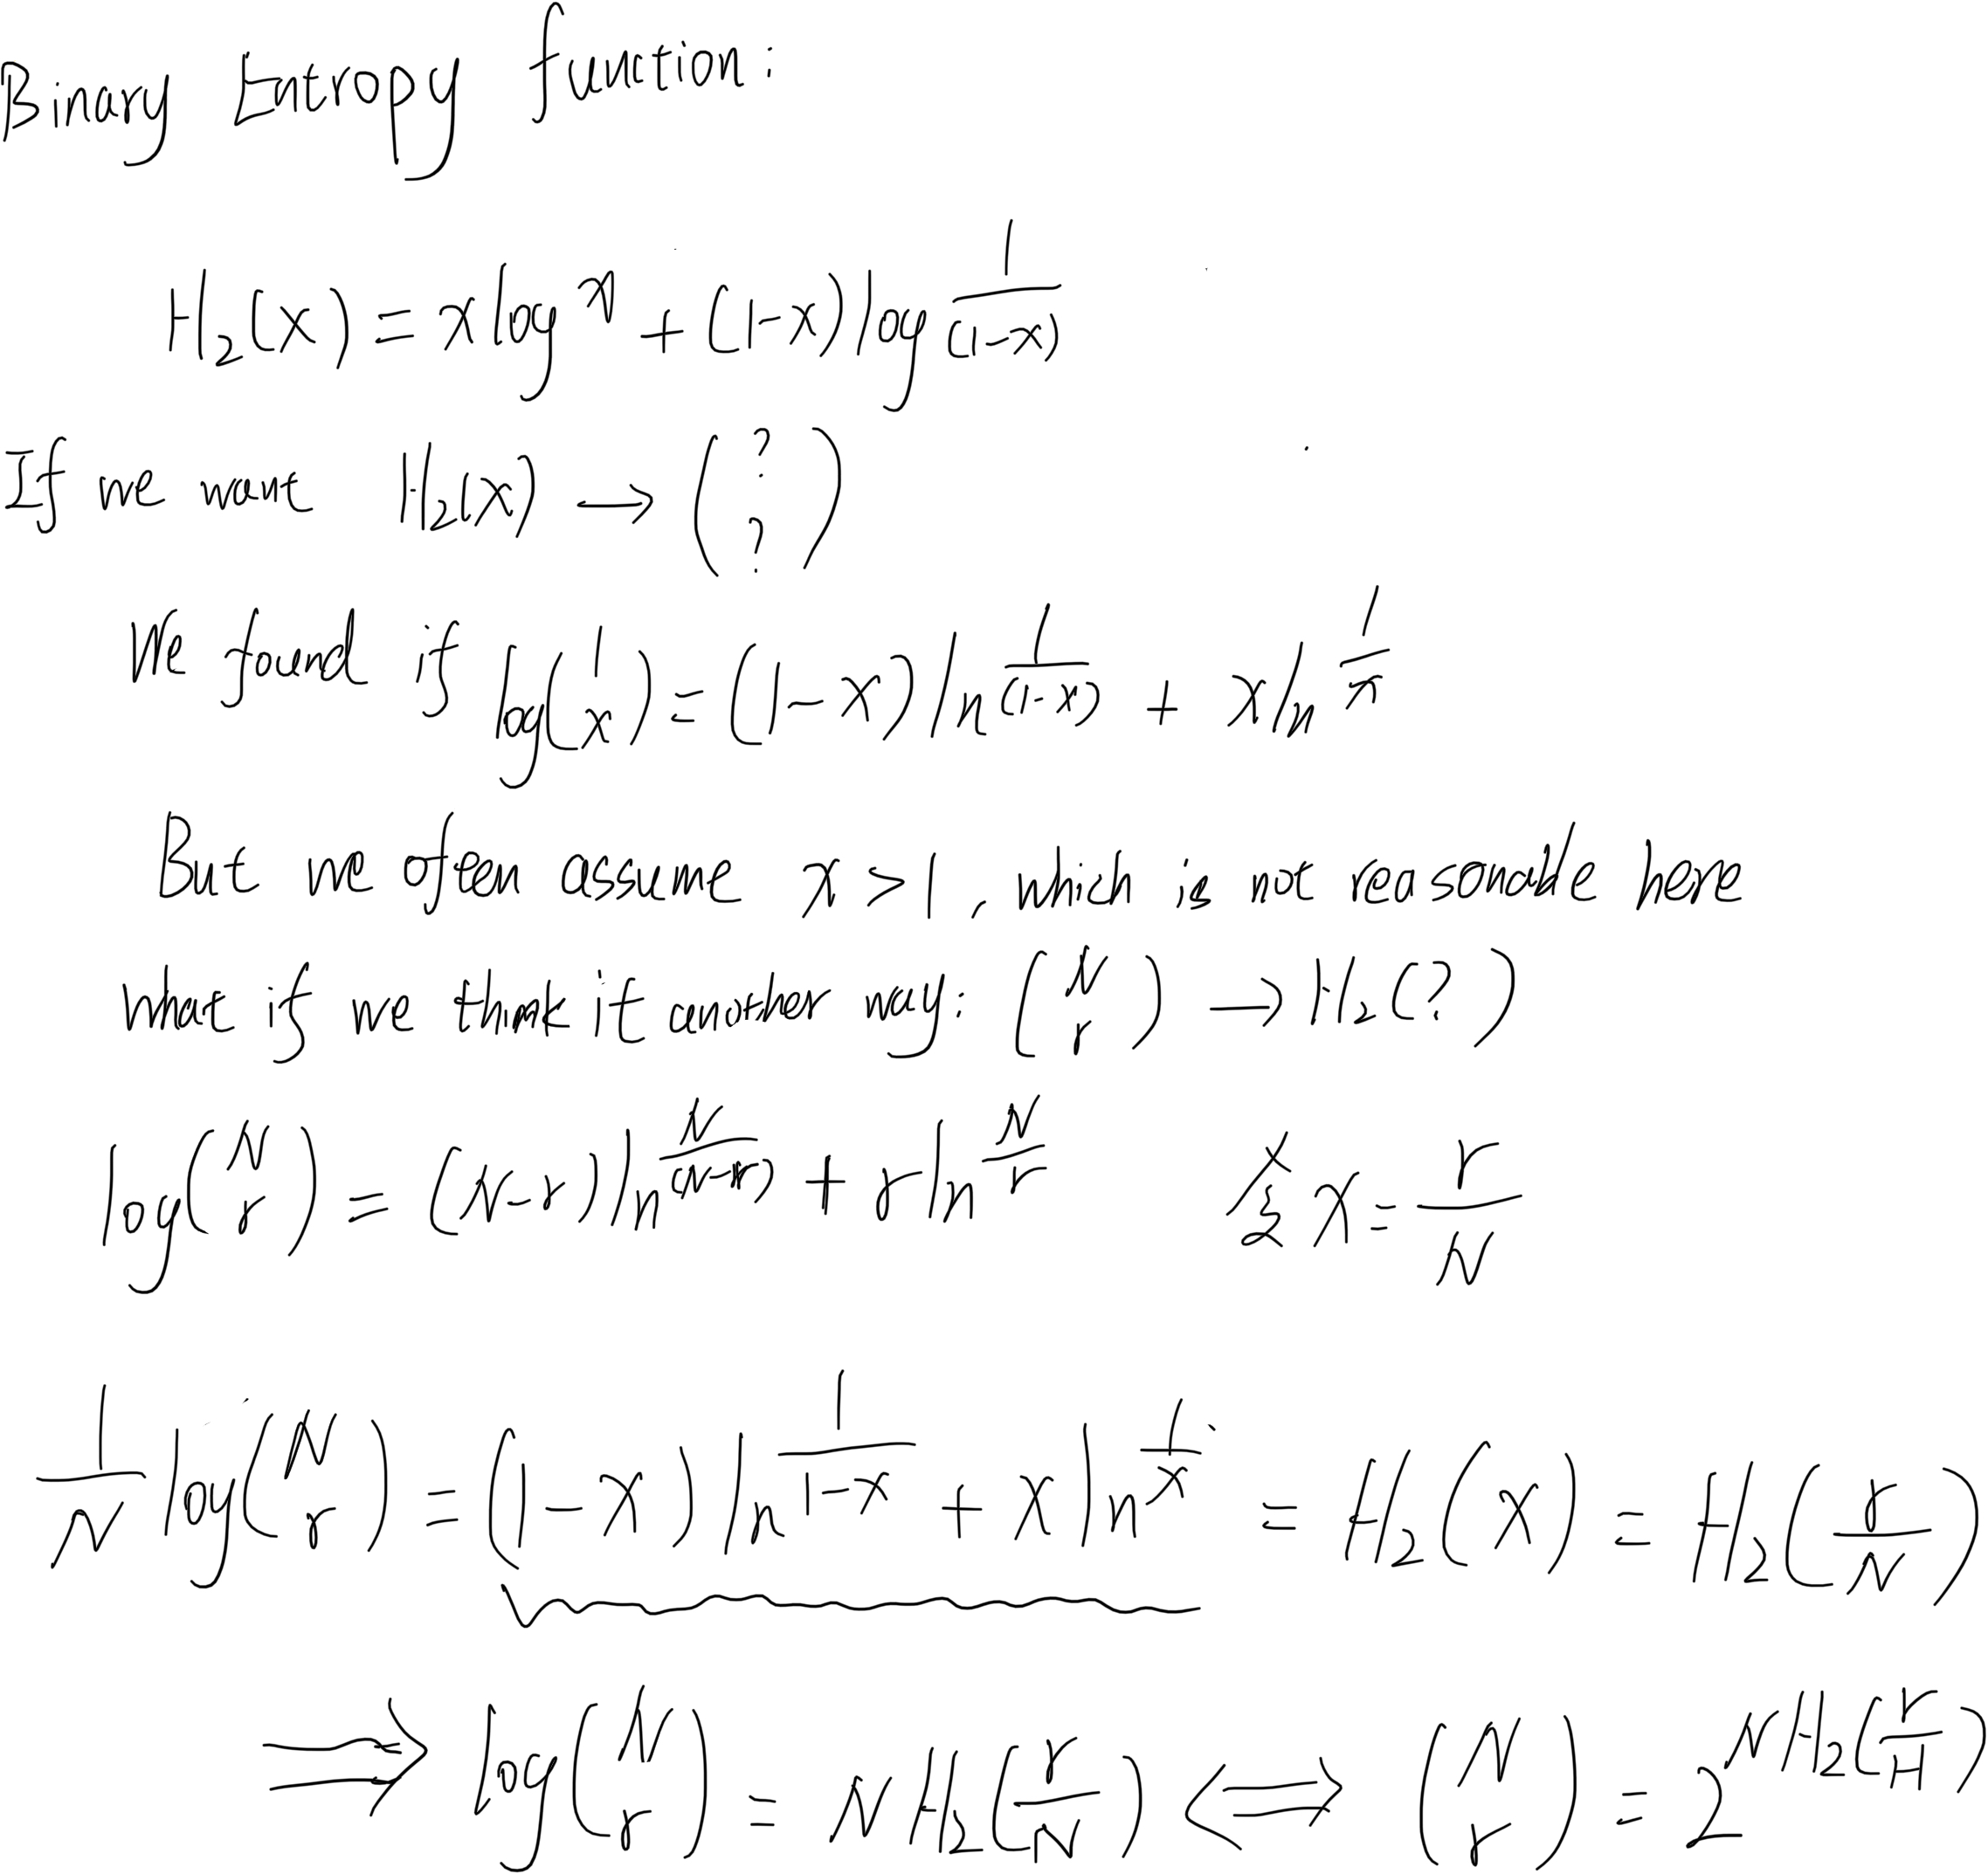 Binary Entropy function:
H₂(x) = x log x + (1-x) log 1/(1-x)
If we want H₂(x) → (? ?)
We found if log(1 x) = (1-x) ln 1/(1-x) + x ln 1/x
But we often assume x > 1, which is not reasonable here
what if we think it another way: (N r) → H₂(?)
log(N r) = (N-r) ln N/(N-r) + r ln N/r 令 x = r/N
1/N log(N r) = (1-x) ln 1/(1-x) + x ln 1/x = H₂(x) = H₂(r/N)
⟹ log(N r) = N H₂(r/N) ⟺ (N r) = 2^(N H₂(r/N))